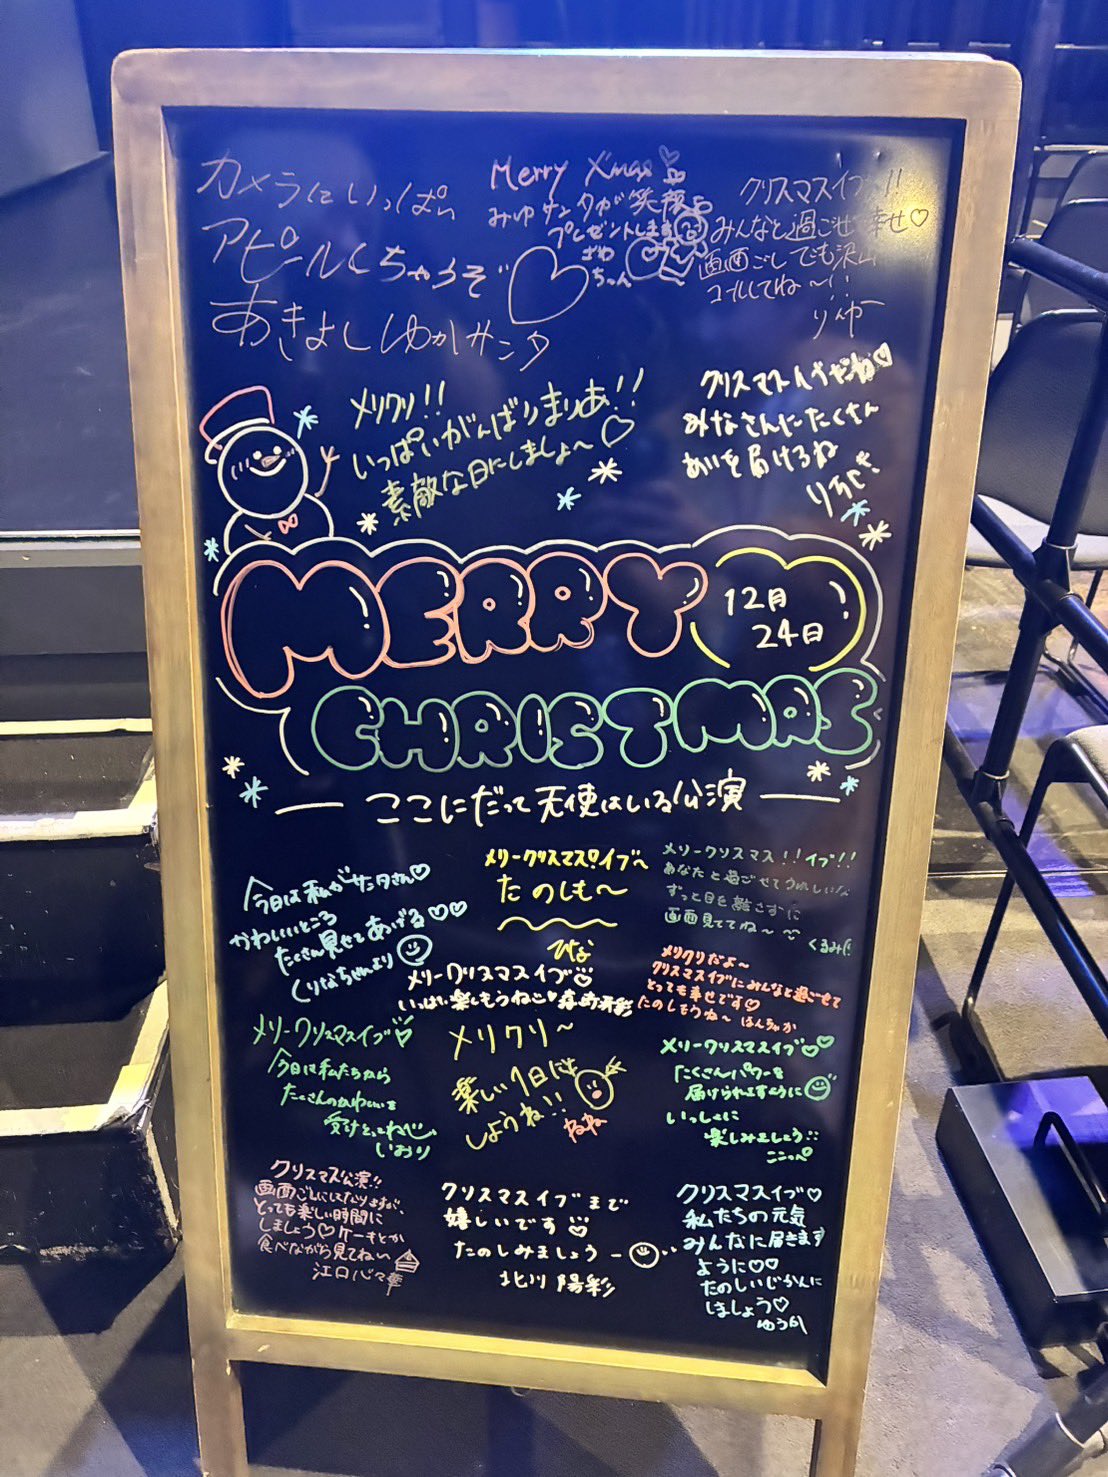 カメラにいっぱい
アピールしちゃうぞ
あきよしゆかサンタ
Merry X'mas
みゆサンタが笑顔
プレゼントします
ざわ
ちゃん
クリスマスイブ!!
みんなと過ごせて幸せ♡
画面ごしでも沢山
コールしてね〜!!
りんゆー
メリクリ!!
いっぱいがんばりまりあ!!
素敵な日にしましょ〜♡
クリスマスイヴだね♡
みなさんにたくさん
あいを届けるね
MERRY
12月
24日
CHRISTMAS
ここにだって天使はいる公演
今日は私がサンタさん♡
かわいいところ
たくさん見せてあげる♡♡
くりなちゃんより
メリークリスマスイブ〜
たのしも〜
ひな
メリークリスマス!!イブ!!
あなたと過ごせてうれしいな
ずっと目を離さずに
画面見ててね〜
くるみ
メリークリスマスイブ
いっぱい楽しもうね
メリクリだよ〜
クリスマスイブにみんなと過ごせて
とっても幸せです♡
たのしもうね〜 はんちゃか
メリークリスマスイブ♡
今日は私たちから
たくさんのかわいいを
受けとってね
いおり
メリクリ〜
楽しい1日に
しようね!!
ねね
メリークリスマスイブ♡♡
たくさんパワーを
届けられますように
いっしょに
楽しみましょう
ここっぺ
クリスマス公演!!
画面ごしになりますが、
とっても楽しい時間に
しましょう♡ケーキとか
食べながら見てね〜
江口心々華
クリスマスイブまで
嬉しいです
たのしみましょうー
北川陽彩
クリスマスイブ♡
私たちの元気
みんなに届きます
ように♡♡
たのしいじかんに
しましょう♡
ゆうか